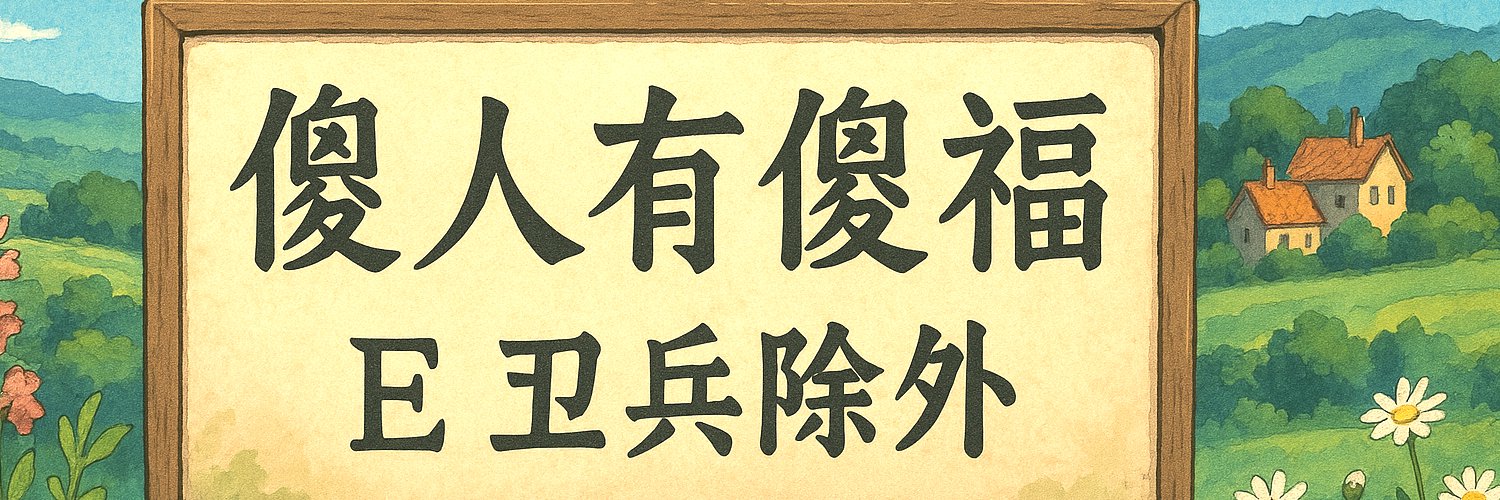 傻人有傻福
E卫兵除外